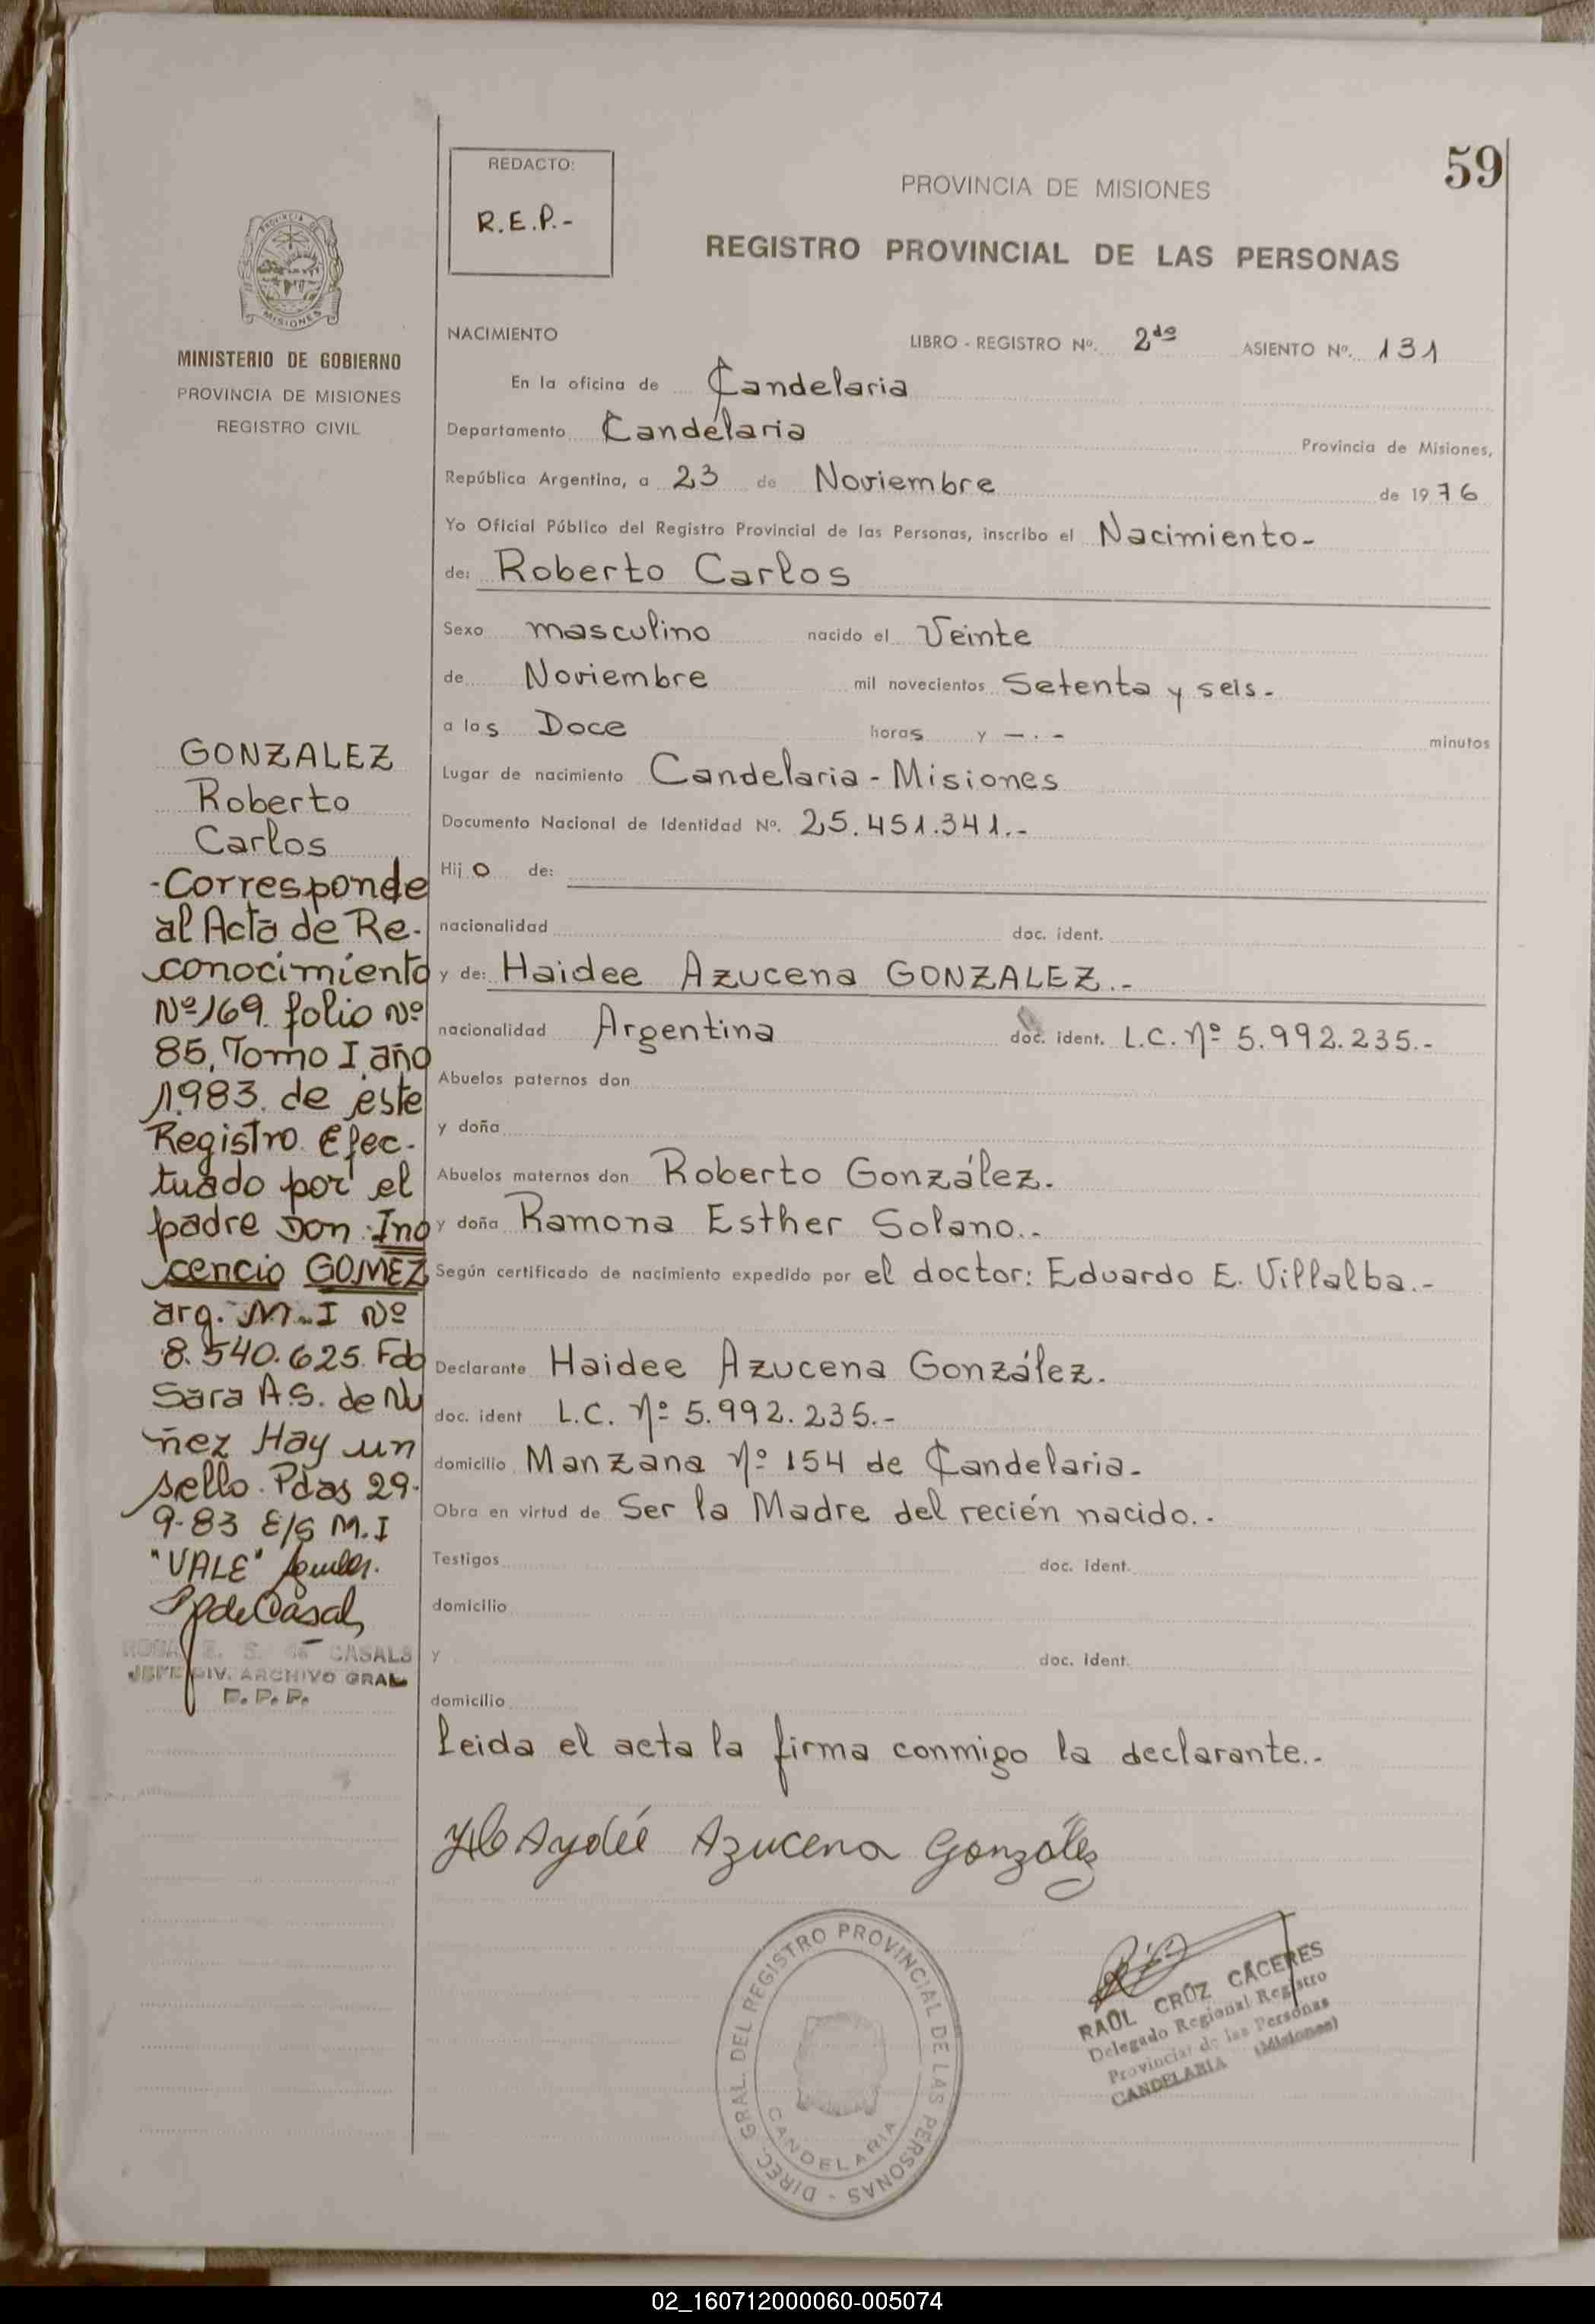 59
REDACTO:
R.E.P.-
PROVINCIA DE MISIONES
REGISTRO PROVINCIAL DE LAS PERSONAS
PROVINCIA DE
MISIONES
MINISTERIO DE GOBIERNO
PROVINCIA DE MISIONES
REGISTRO CIVIL
NACIMIENTO LIBRO - REGISTRO Nº. 2do ASIENTO Nº. 131
En la oficina de Candelaria
Departamento Candelaria Provincia de Misiones,
República Argentina, a 23 de Noviembre de 1976
Yo Oficial Público del Registro Provincial de las Personas, inscribo el Nacimiento-
de: Roberto Carlos
Sexo masculino nacido el Veinte
de Noviembre mil novecientos Setenta y seis.-
a las Doce horas y -.- minutos
Lugar de nacimiento Candelaria - Misiones
Documento Nacional de Identidad Nº. 25.451.341.-
Hijo de:
nacionalidad doc. ident.
y de: Haidee Azucena GONZALEZ.-
nacionalidad Argentina doc. ident. L.C. Nº 5.992.235.-
Abuelos paternos don
y doña
Abuelos maternos don Roberto González.
y doña Ramona Esther Solano.-
Según certificado de nacimiento expedido por el doctor: Eduardo E. Villalba.-
Declarante Haidee Azucena González.
doc. ident L.C. Nº 5.992.235.-
domicilio Manzana Nº 154 de Candelaria-
Obra en virtud de Ser la Madre del recién nacido.-
Testigos doc. ident.
domicilio
y doc. ident.
domicilio
Leida el acta la firma conmigo la declarante.-
GONZALEZ
Roberto
Carlos
-Corresponde
al Acta de Re-
conocimiento
Nº169 folio Nº
85, Tomo I, año
1983. de este
Registro. Efec-
tuado por el
padre Don Ino
cencio GOMEZ
arg. M.I Nº
8.540.625. Fdo
Sara A.S. de Nu
ñez Hay un
sello. Pdas 29-
9-83 E/S M.I
"VALE"
de Casals
ROSA E. S. de CASALS
JEFE DIV. ARCHIVO GRAL
Haydée Azucena González
DIREC. GRAL. DEL REGISTRO PROVINCIAL DE LAS PERSONAS -
CANDELARIA
RAUL CRUZ CACERES
Delegado Regional Registro
Provincial de las Personas
CANDELARIA (Misiones)
02_160712000060-005074